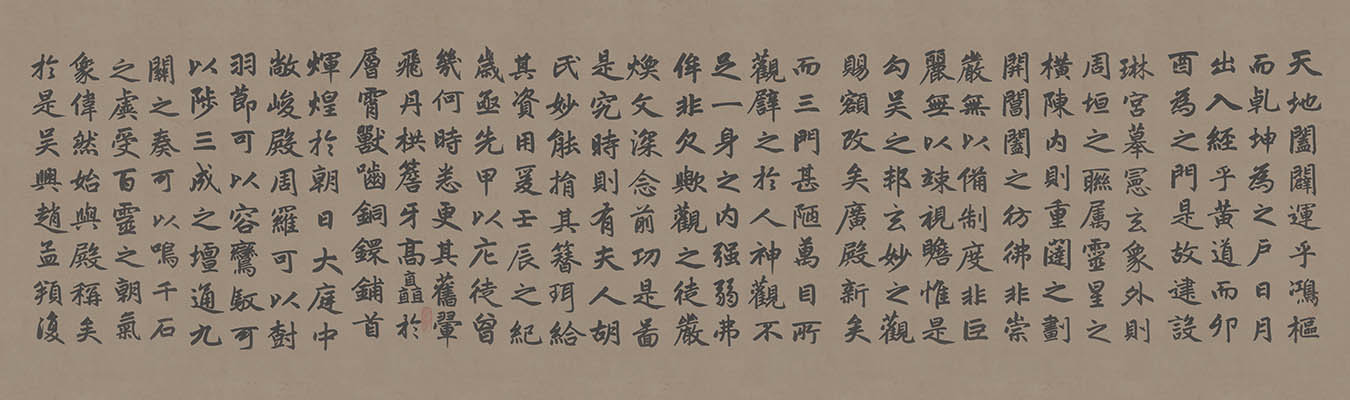 天地闔闢運乎鴻樞
而乹坤為之户日月
出入經乎黃道而卯
酉為之門是故建設
琳宮摹憲玄象外則
周垣之聮属靈星之
橫陳内則重闥之劃
開閶闔之彷彿非崇
嚴無以備制度非巨
麗無以竦視瞻惟是
勾吴之邦玄妙之觀
賜額改矣廣殿新矣
而三門甚陋萬目所
觀譬之於人神觀不
足一身之内强弱弗
侔非欠歟觀之徒嚴
煥文深念前功是啚
是究時則有夫人胡
氏妙能捐其簪珥給
其資用爰壬辰之紀
歲亟先甲以庀徒曾
幾何時悉更其舊翬
飛丹栱簷牙髙矗於
層霄獸嚙銅鐶鋪首
煇煌於朝日大庭中
敞峻殿周羅可以對
羽節可以容鸞馭可
以陟三成之壇通九
關之奏可以嗚千石
之虡受百靈之朝氣
象偉然始與殿稱矣
於是吴興趙孟頫復